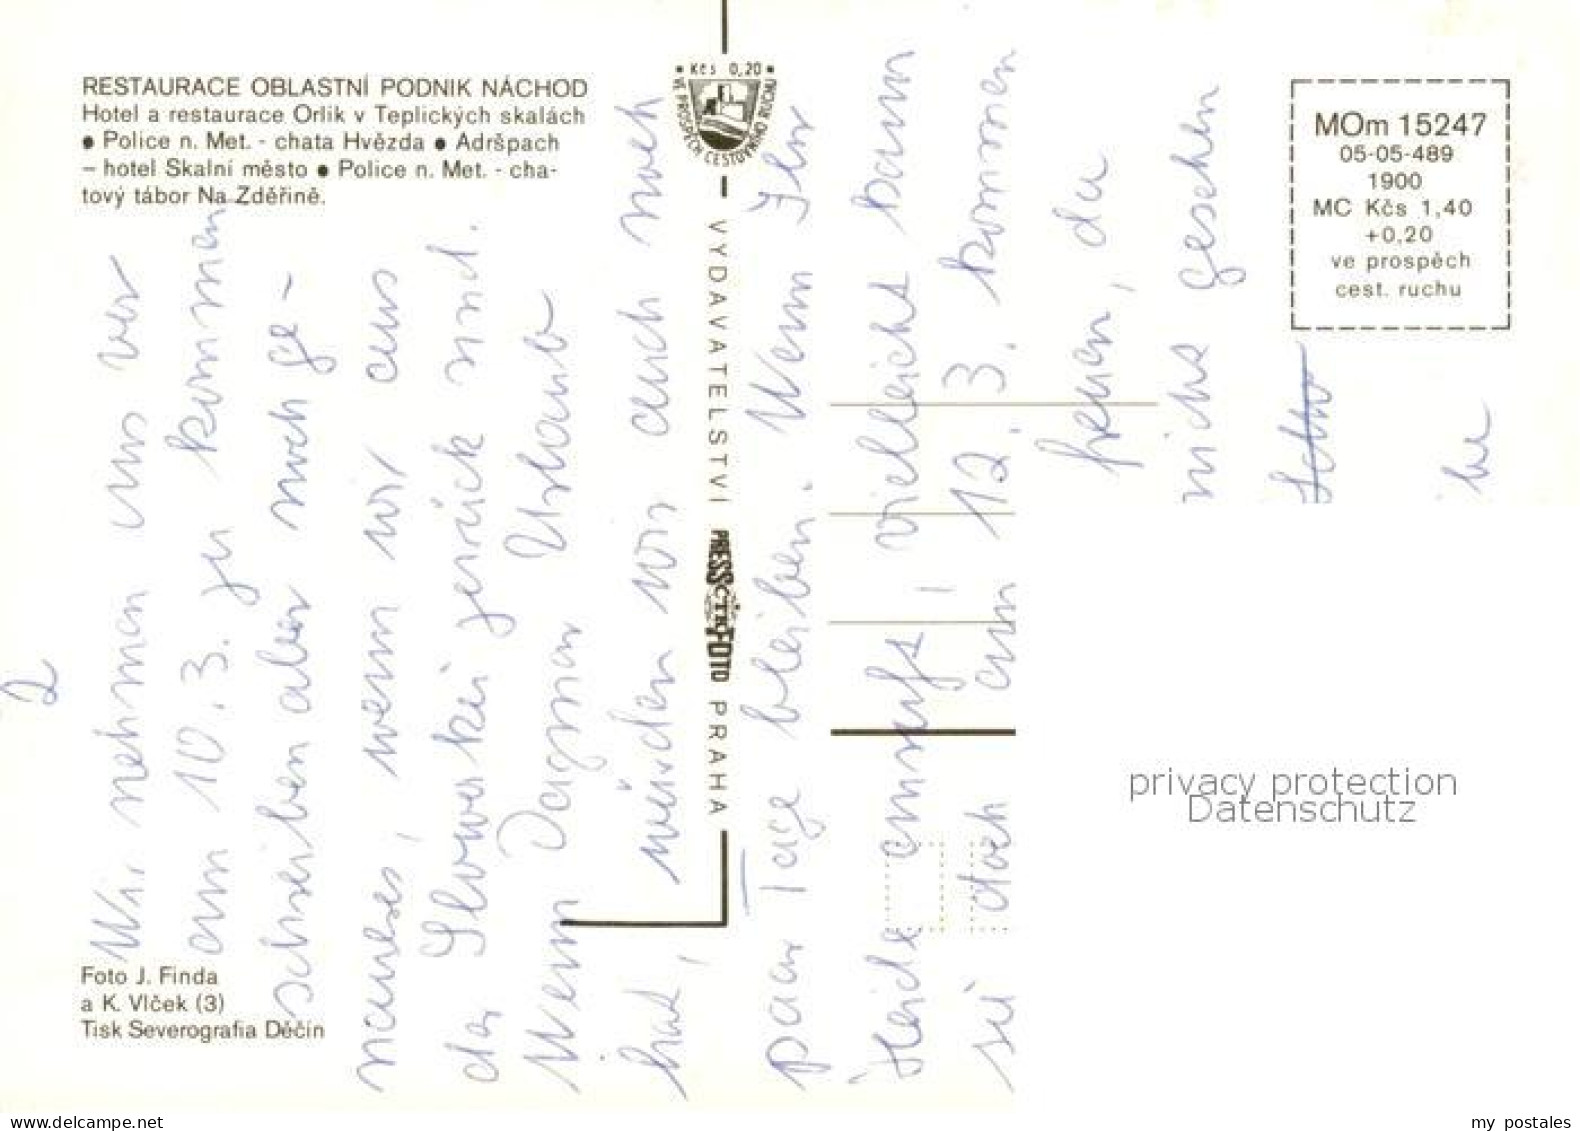 RESTAURACE OBLASTNÍ PODNIK NÁCHOD
Hotel a restaurace Orlík v Teplických skalách
● Police n. Met. - chata Hvězda ● Adršpach
– hotel Skalní město ● Police n. Met. - cha-
tový tábor Na Zděřině.
• Kčs 0,20 •
VE PROSPĚCH CESTOVNÍHO RUCHU
MOm 15247
05-05-489
1900
MC Kčs 1,40
+0,20
ve prospěch
cest. ruchu
VYDAVATELSTVÍ PRESSFOTO PRAHA
2
Wir nehmen uns vor
am 10.3. zu kommen
schreiben aber noch ge-
naues, wenn wir aus
der Slowakei zurück sind.
Wenn Dagmar Urlaub
hat, würden wir auch noch
paar Tage bleiben. Wenn Ihr
Heide anruft, vielleicht kann
sie doch am 12.3. kommen
freuen, da
nicht gesehen
Foto J. Finda
a K. Vlček (3)
Tisk Severografia Děčín
privacy protection
Datenschutz
delcampe.net
my postales